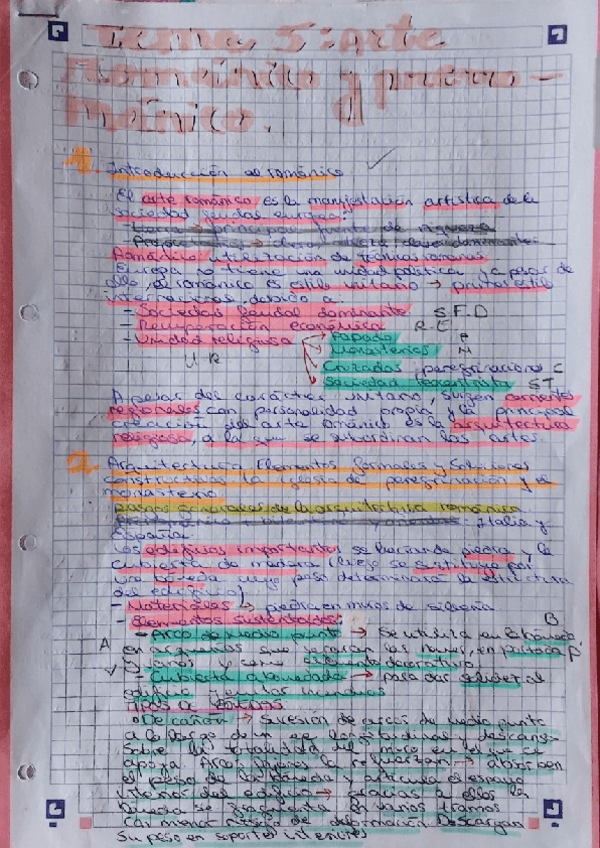 Tema 5: Arte
Románico y prerro-
mánico.
1. Introducción al románico
El arte románico es la manifestación artística de la
sociedad feudal europea.
- tierra → principal fuente de riqueza
Románico utilización de técnicas romanas
Europa no tiene una unidad política y a pesar de
ello, el románico es estilo unitario → primer estilo
internacional debido a:
- Sociedad feudal dominante S.F.D
- Recuperación económica R.E
- Unidad religiosa Papado P
UR Monasterios M
Cruzadas, peregrinaciones C
Sociedad teocentrista ST
A pesar del carácter unitario, surgen corrientes
regionales con personalidad propia y la principal
creación del arte románico es la arquitectura
religiosa, a la que se subordinan las artes.
2. Arquitectura. Elementos formales y soluciones
constructivas. La iglesia de peregrinación y el
monasterio
Rasgos generales de la arquitectura románica
Italia y
España
Los edificios importantes se hacían de piedra y la
cubierta de madera (luego se sustituyó por
una bóveda, cuyo peso determinará la estructura
del edificio)
- Materiales → piedra en muros de sillería
- Elementos sustentados: B
A - Arco de medio punto → Se utiliza en la bóveda,
en arquerías que separan las naves, en portada P
y vanos y como elemento decorativo.
V - Cubierta abovedada → para dar solidez al
edificio y evitar incendios
Tipos de bóvedas
• De cañón → Sucesión de arcos de medio punto
a lo largo de un eje longitudinal y descansa
sobre la totalidad del muro en el que se
apoya. Arcos fajones la refuerzan → absorben
el peso de la bóveda y articula el espacio
interno del edificio → gracias a ellos la
bóveda se fragmenta en varios tramos
con menor riesgo de deformación. Descargan
su peso en soportes interiores